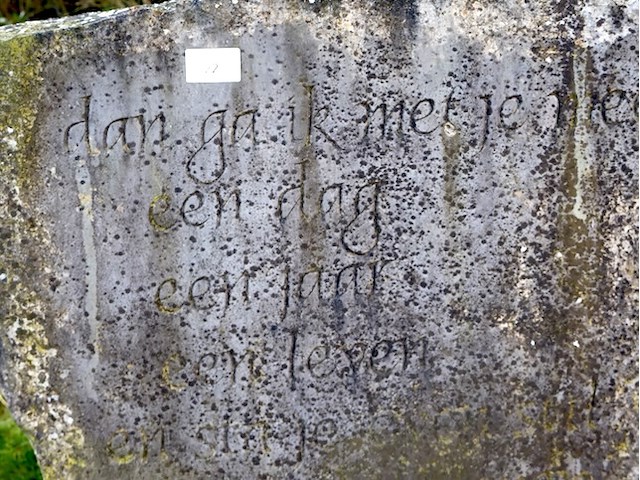 dan ga ik met je me
een dag
een jaar
een leven
en je